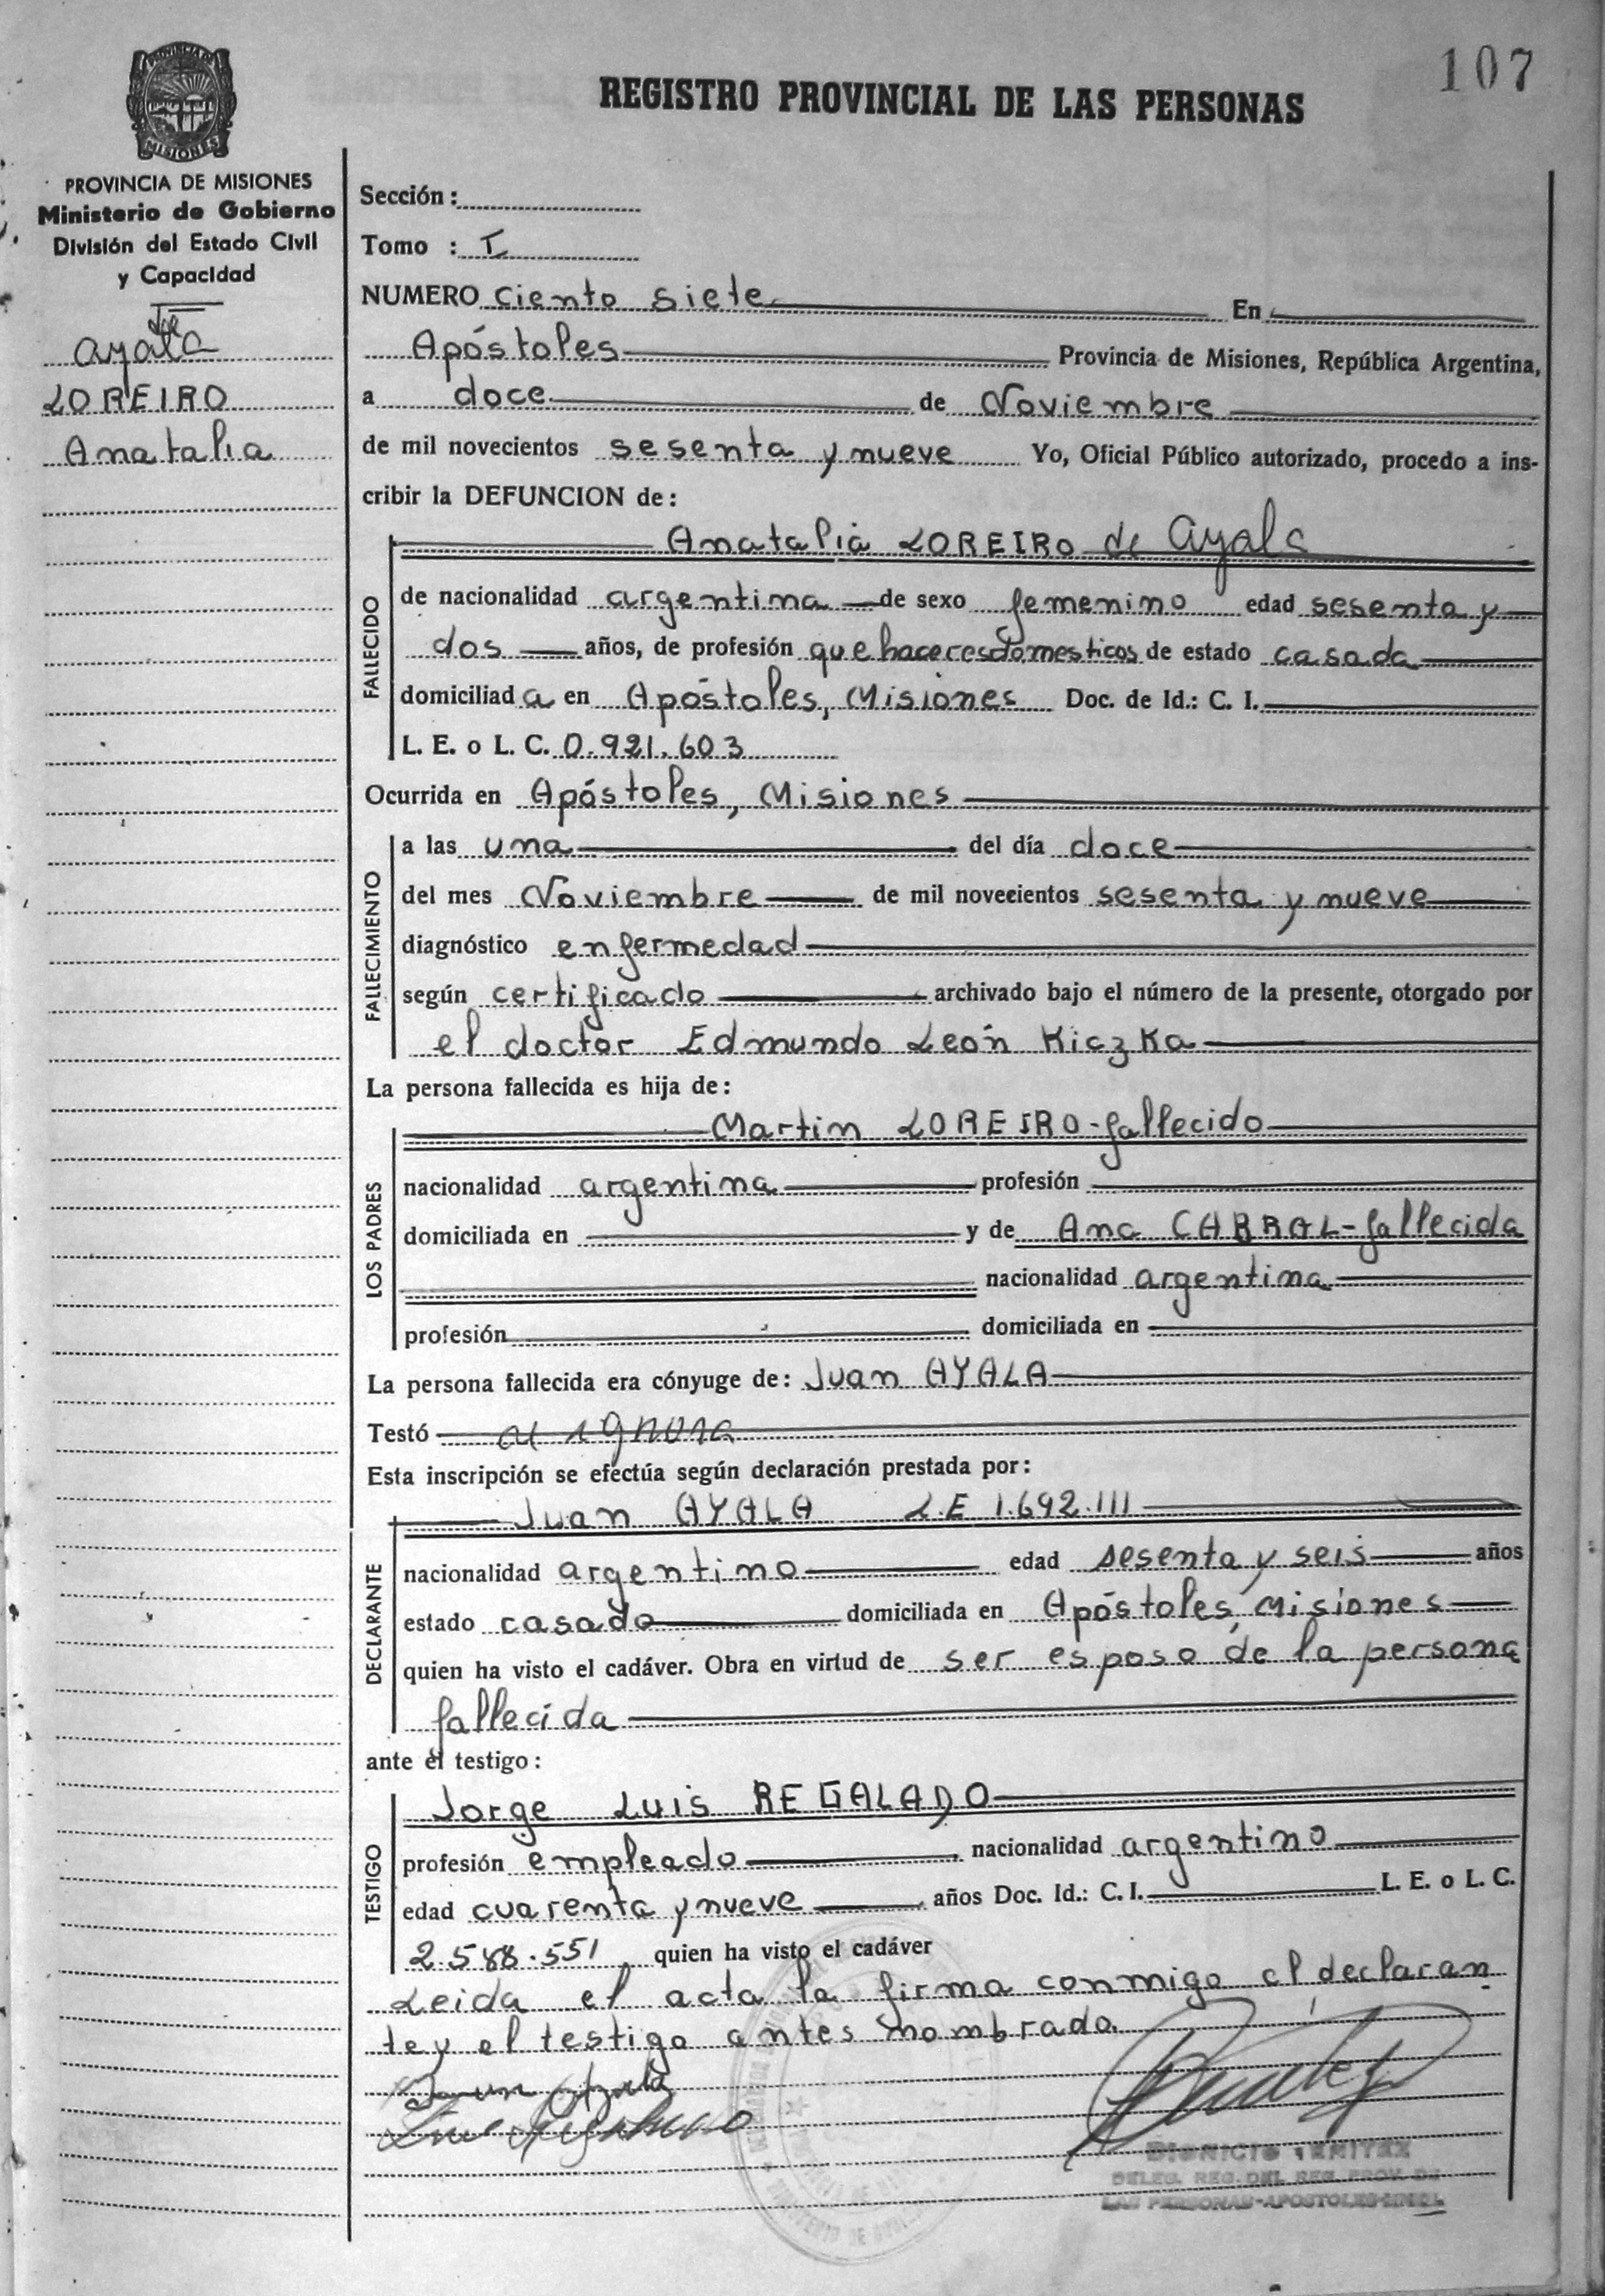 107
REGISTRO PROVINCIAL DE LAS PERSONAS
PROVINCIA DE
MISIONES
PROVINCIA DE MISIONES
Ministerio de Gobierno
División del Estado Civil
y Capacidad
de
Ayala
LOREIRO
Anatalia
Sección:
Tomo : I
NUMERO ciento siete En
Apóstoles Provincia de Misiones, República Argentina,
a doce de Noviembre
de mil novecientos sesenta y nueve Yo, Oficial Público autorizado, procedo a ins-
cribir la DEFUNCION de:
Anatalia LOREIRO de Ayala
FALLECIDO
de nacionalidad argentina de sexo femenino edad sesenta y
dos años, de profesión quehaceres domesticos de estado casada
domiciliad a en Apóstoles, Misiones Doc. de Id.: C. I.
L. E. o L. C. 0.921.603
Ocurrida en Apóstoles, Misiones
FALLECIMIENTO
a las una del día doce
del mes Noviembre de mil novecientos sesenta y nueve
diagnóstico enfermedad
según certificado archivado bajo el número de la presente, otorgado por
el doctor Edmundo León Kiczka
La persona fallecida es hija de:
LOS PADRES
Martin LOREIRO-fallecido
nacionalidad argentina profesión
domiciliada en y de Ana CABRAL-fallecida
nacionalidad argentina
profesión domiciliada en
La persona fallecida era cónyuge de: Juan AYALA
Testó se ignora
Esta inscripción se efectúa según declaración prestada por:
Juan AYALA L.E 1.692.111
DECLARANTE
nacionalidad argentino edad sesenta y seis años
estado casado domiciliada en Apóstoles, Misiones
quien ha visto el cadáver. Obra en virtud de ser esposo de la persona
fallecida
ante el testigo:
TESTIGO
Jorge Luis REGALADO
profesión empleado nacionalidad argentino
edad cuarenta y nueve años Doc. Id.: C. I. L. E. o L. C.
2.588.551 quien ha visto el cadáver
Leida el acta la firma conmigo el declaran
te y el testigo antes nombrado.
Juan Ayala
DIONICIO BENITEZ
DELEG. REG. DEL REG. PROV. DE
LAS PERSONAS-APOSTOLES